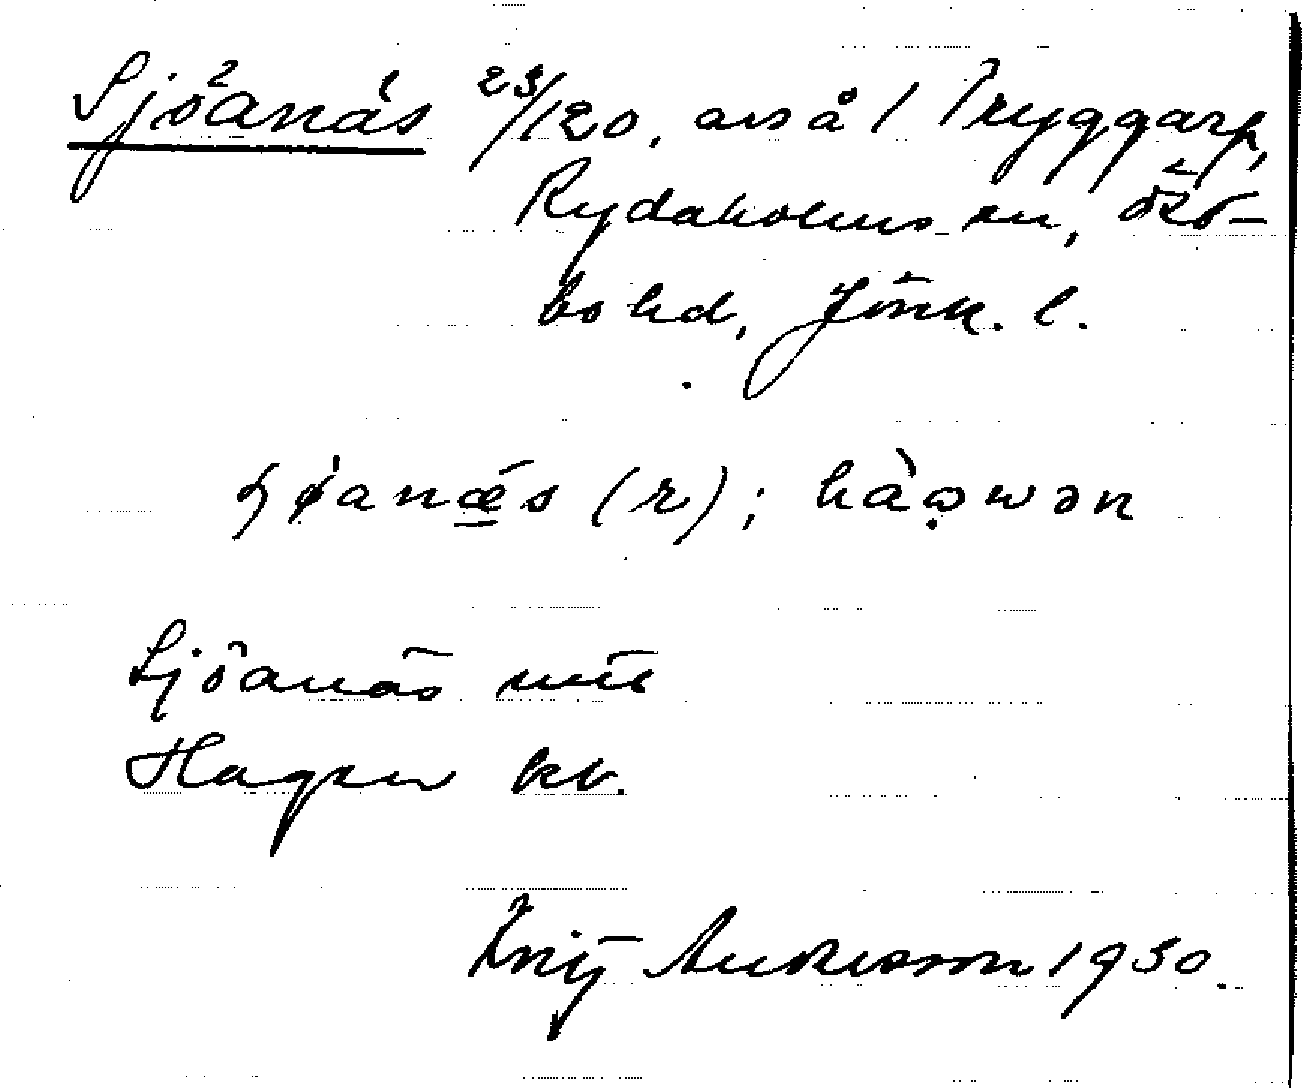 Sjöanäs 23/120, avs å 1 Tryggarp,
Rydaholms sn, Östbo hd, Jönk. l.
(r); hàǫwən
Sjöanäs
Hagen kv.
Andersson 1930.